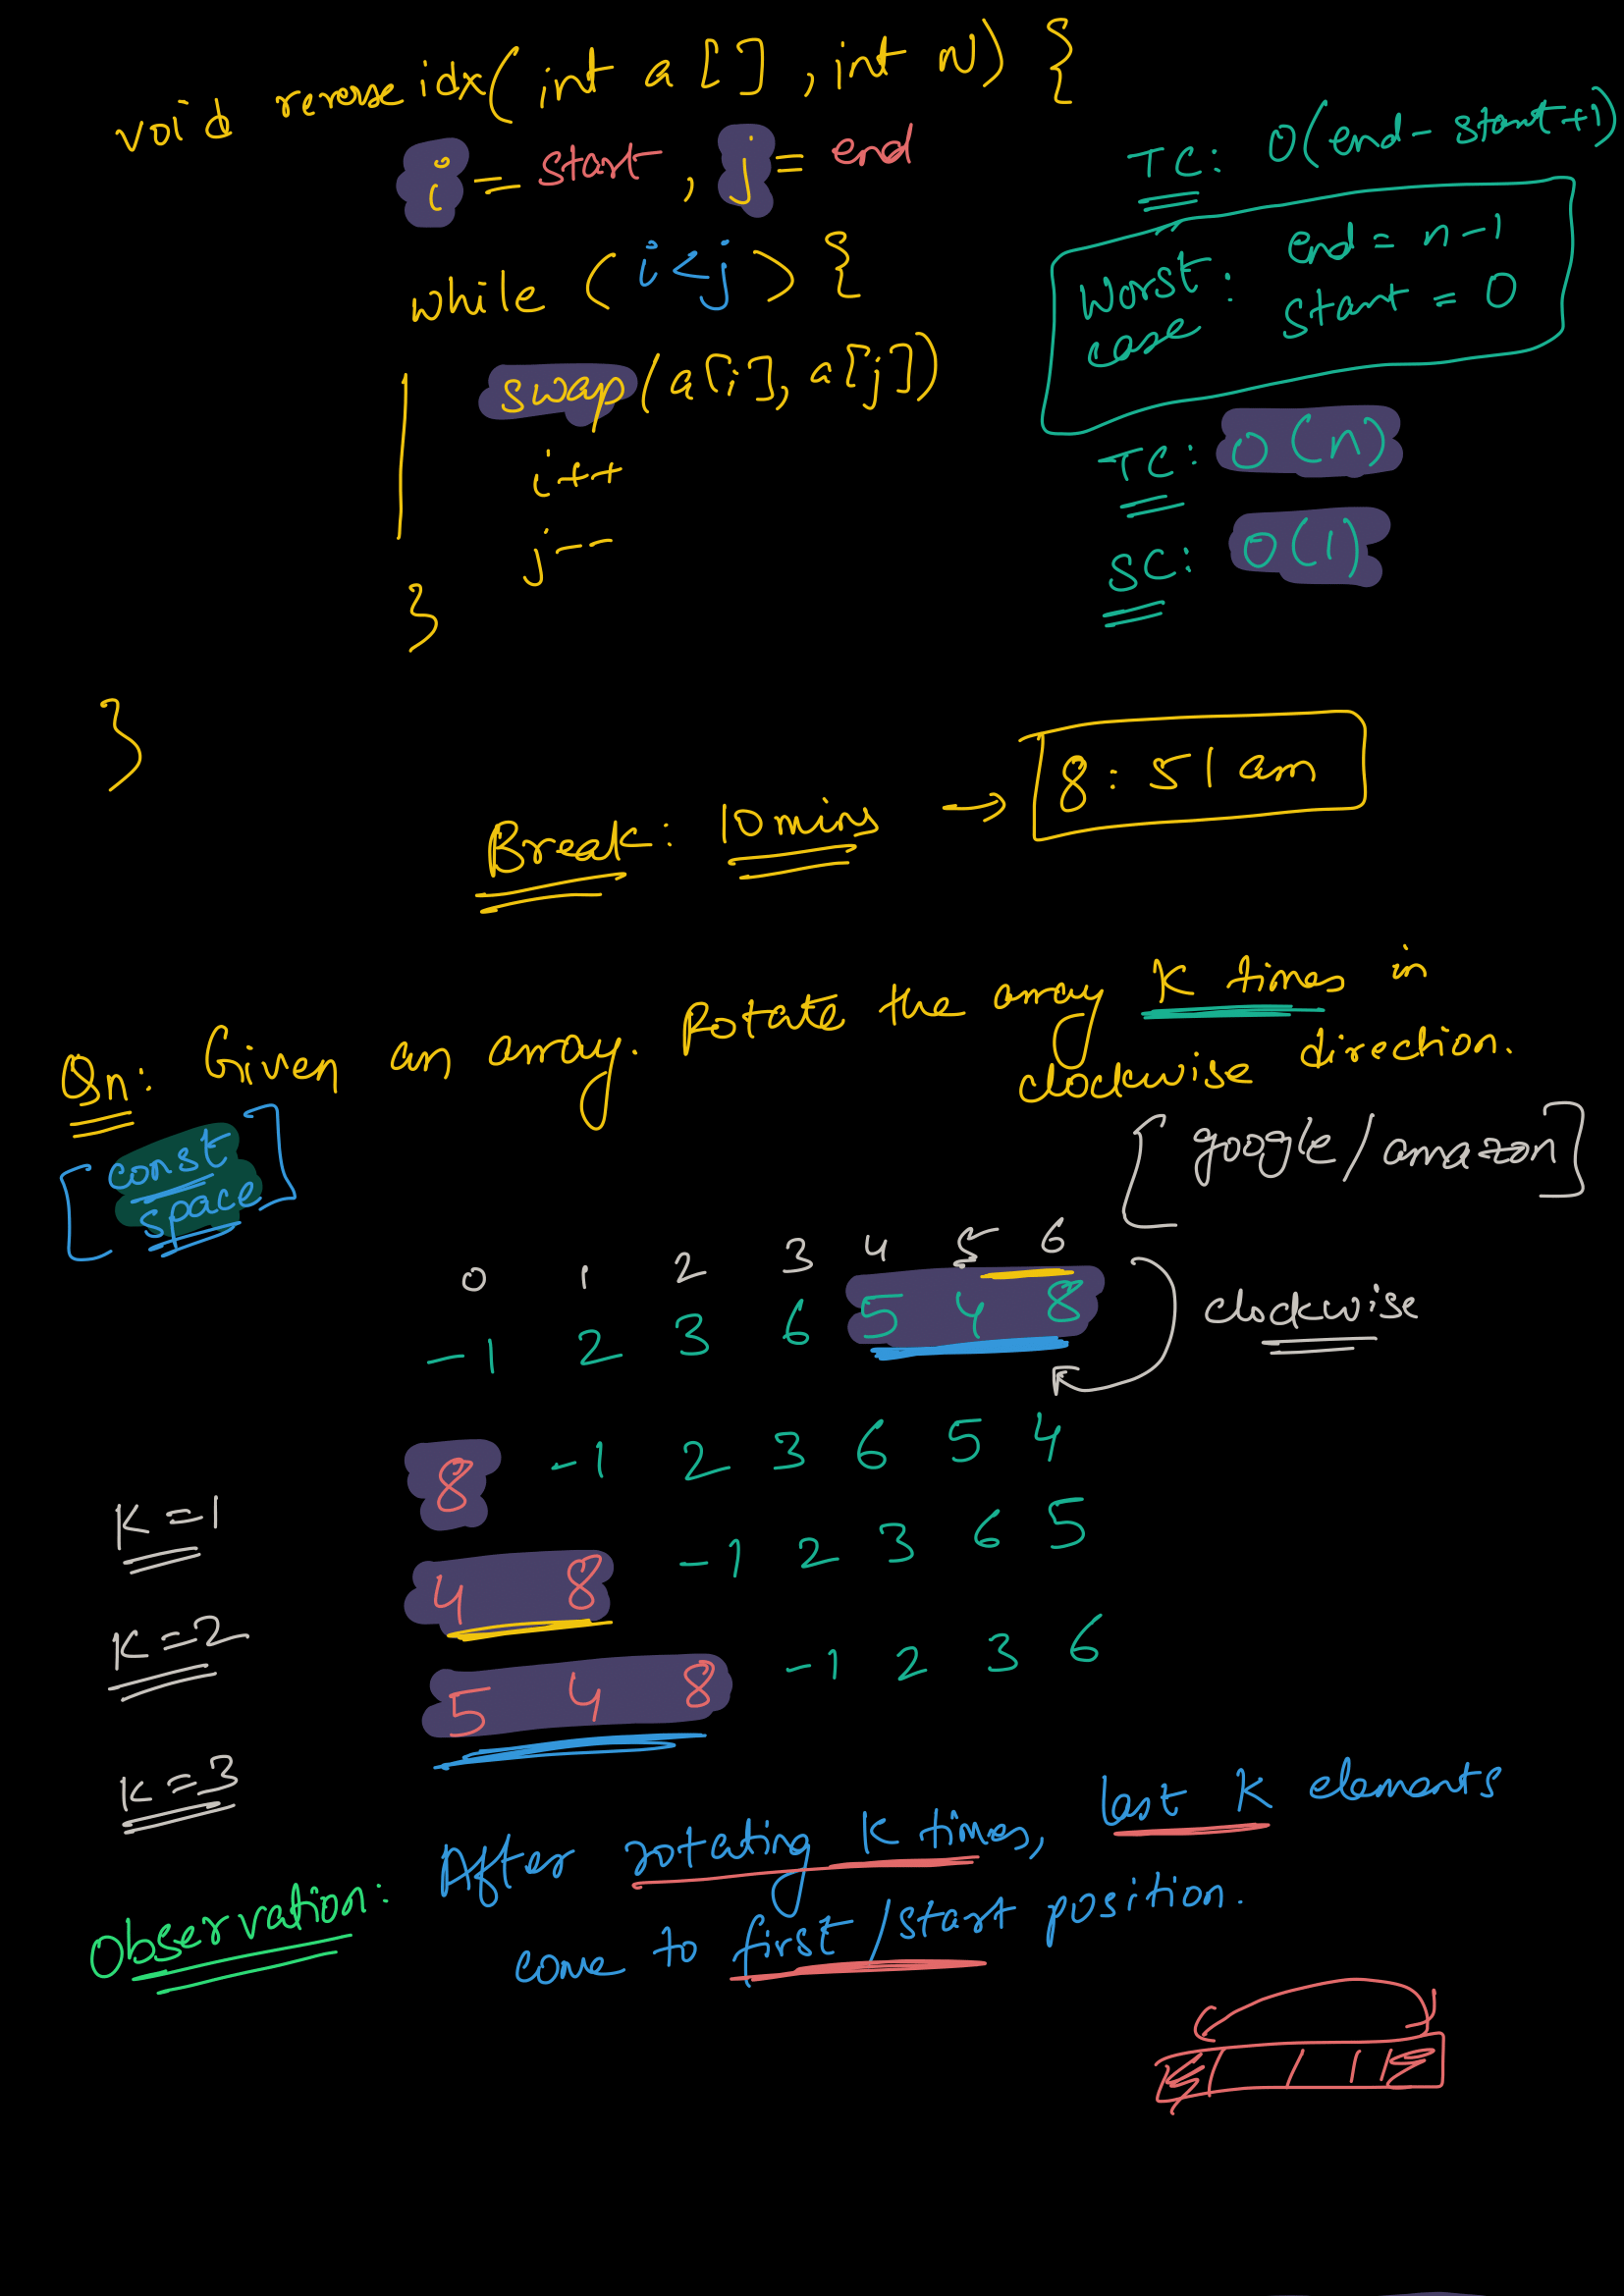 void reverse idx( int a [] , int N) {
i = start , j = end
while ( i<j ) {
swap(a[i], a[j])
i++
j--
}
}
TC: O(end - start+1)
Worst case : end = n-1
start = 0
TC: O(n)
SC: O(1)
Break: 10mins → 8:51 am
Qn: Given an array. Rotate the array K times in
clockwise direction.
[const
space]
[google/amazon]
0 1 2 3 4 5 6
-1 2 3 6 5 4 8
clockwise
K=1 8 -1 2 3 6 5 4
K=2 4 8 -1 2 3 6 5
K=3 5 4 8 -1 2 3 6
Observation: After rotating K times, last K elements
come to first/start position.